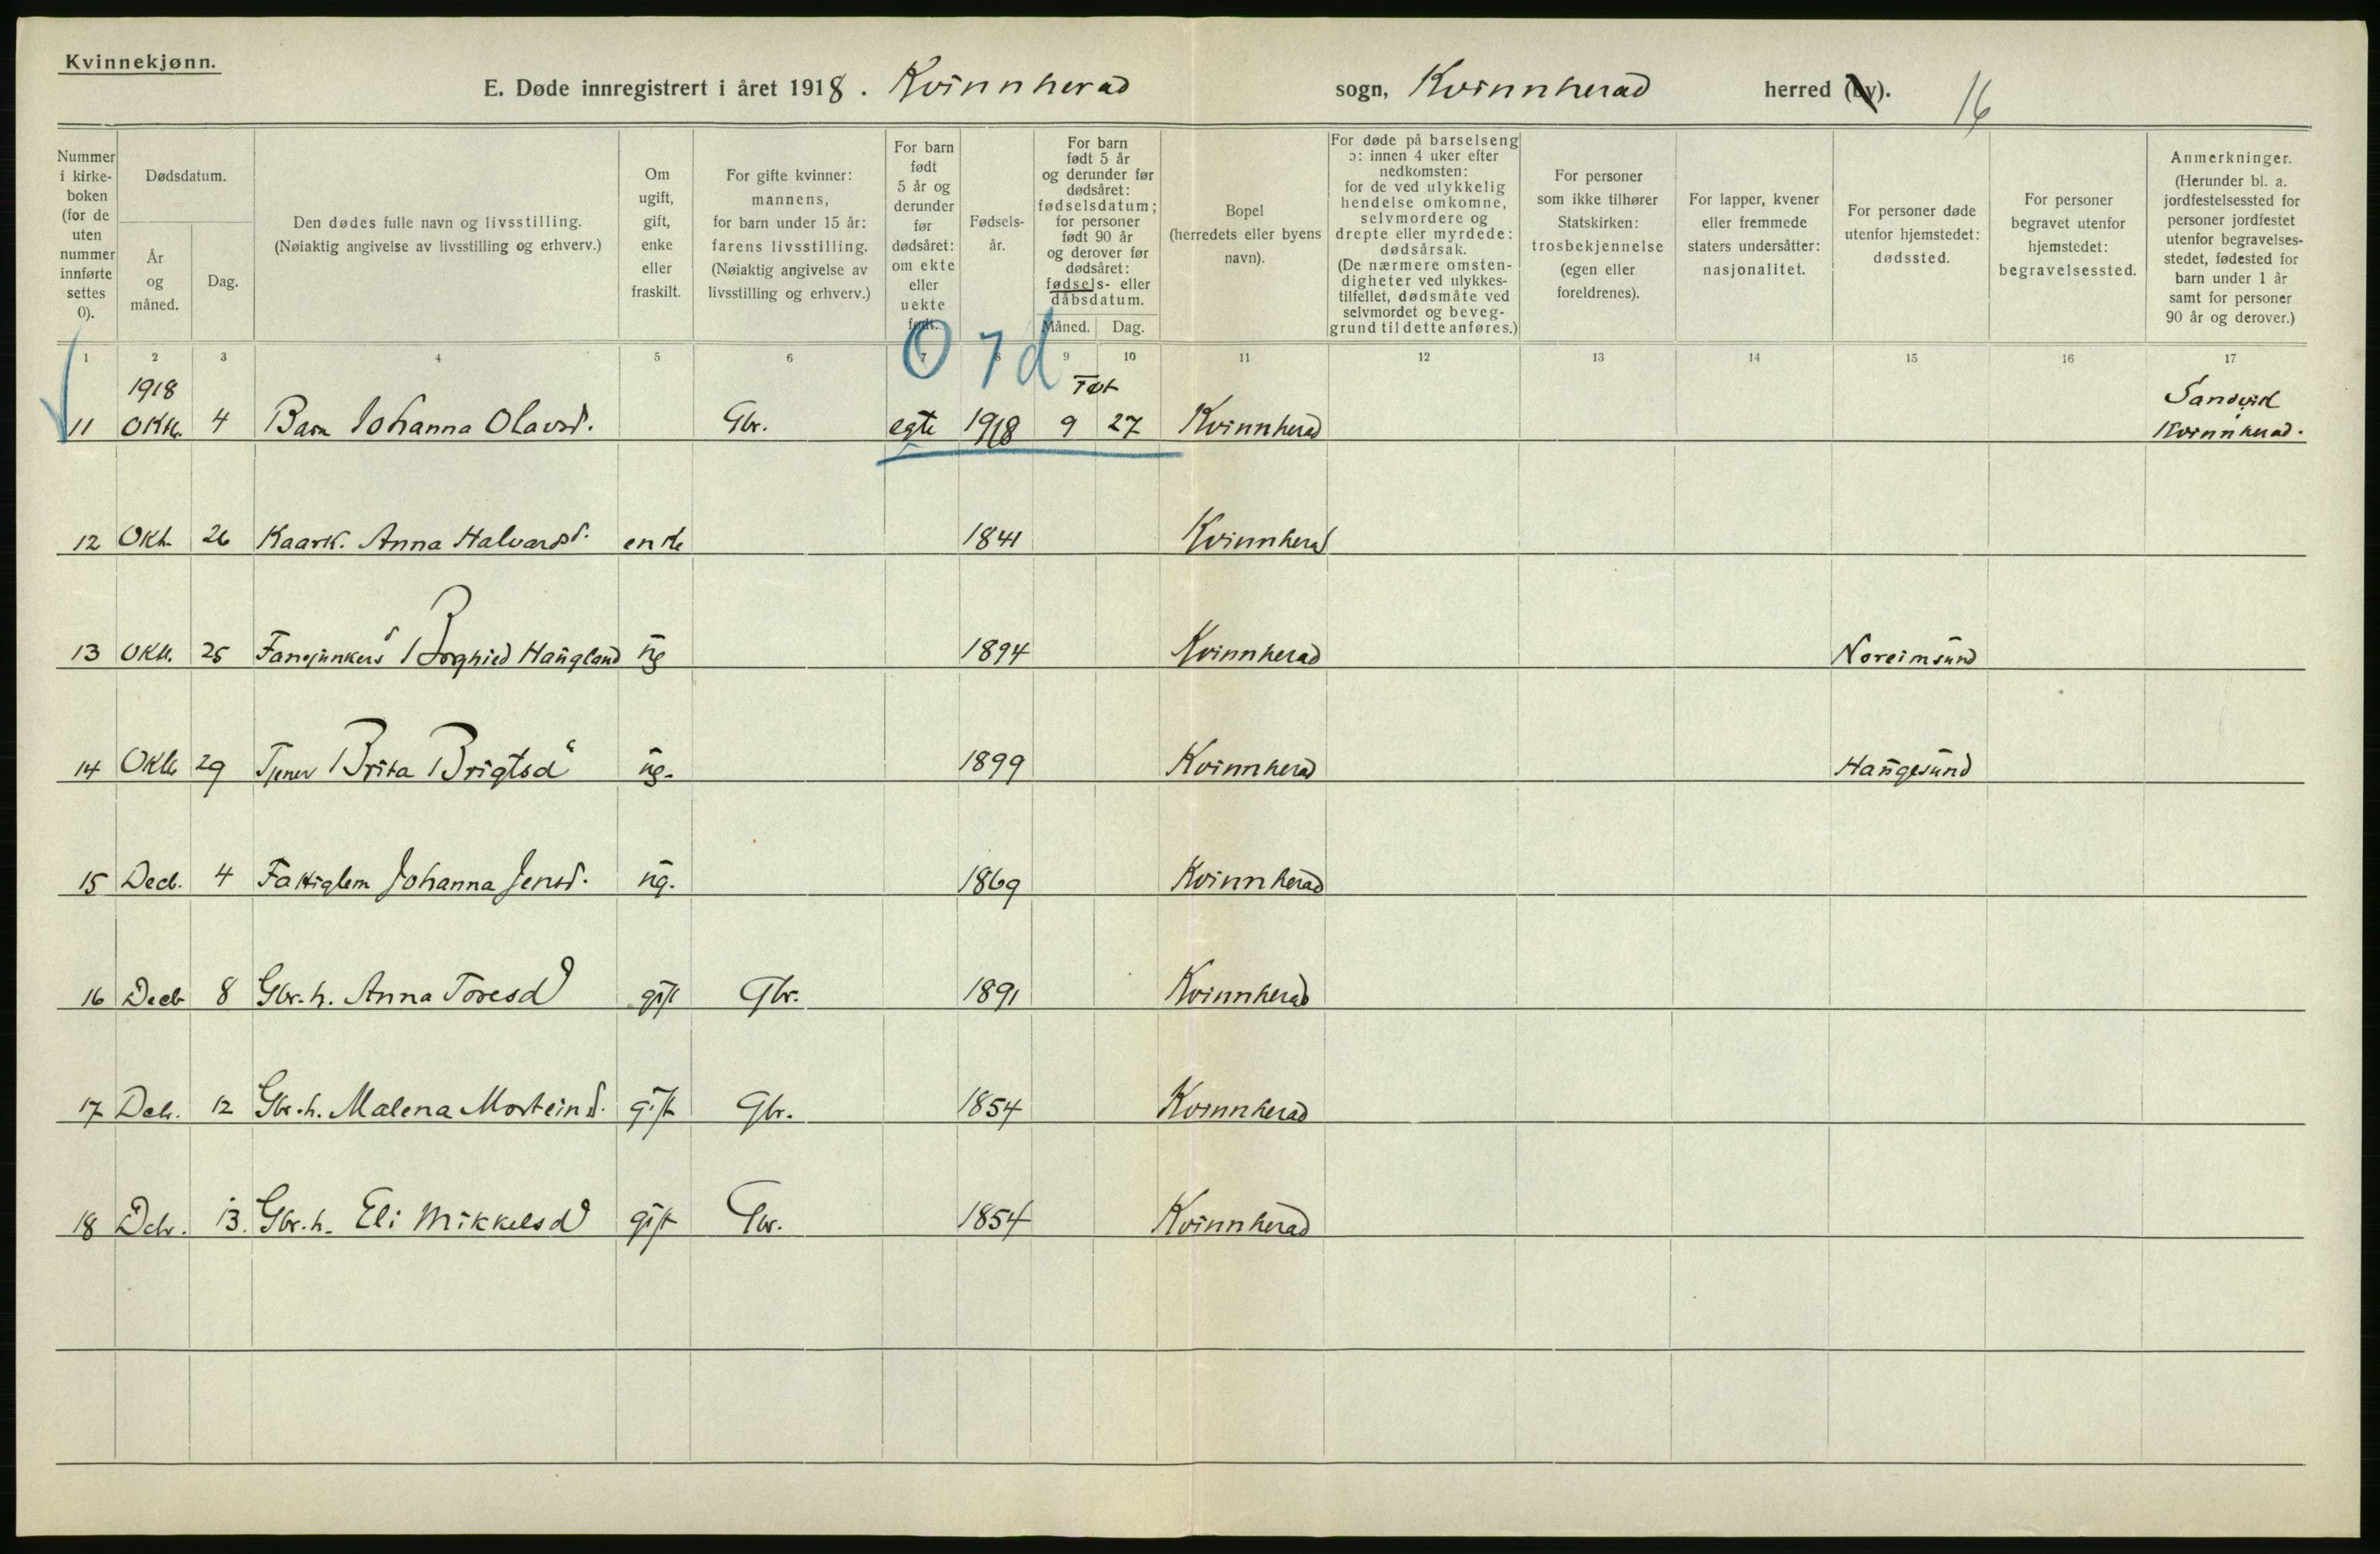 Kvinnekjønn.
E. Døde innregistrert i året 1918. Kvinnherad sogn, Kvinnherad herred (by). 16
Nummer i kirke-boken (for de uten nummer innførte settes 0).
Dødsdatum.
År og måned.
Dag.
Den dødes fulle navn og livsstilling. (Nøiaktig angivelse av livsstilling og erhverv.)
Om ugift, gift, enke eller fraskilt.
For gifte kvinner: mannens, for barn under 15 år: farens livsstilling. (Nøiaktig angivelse av livsstilling og erhverv.)
For barn født 5 år og derunder før dødsåret: om ekte eller uekte født.
Fødsels-år.
For barn født 5 år og derunder før dødsåret: fødselsdatum; for personer født 90 år og derover før dødsåret: fødsels- eller dåbsdatum.
Måned. Dag.
Bopel (herredets eller byens navn).
For døde på barselseng ɔ: innen 4 uker efter nedkomsten: for de ved ulykkelig hendelse omkomne, selvmordere og drepte eller myrdede: dødsårsak. (De nærmere omsten-digheter ved ulykkes-tilfellet, dødsmåte ved selvmordet og beveg-grund til dette anføres.)
For personer som ikke tilhører Statskirken: trosbekjennelse (egen eller foreldrenes).
For lapper, kvener eller fremmede staters undersåtter: nasjonalitet.
For personer døde utenfor hjemstedet: dødssted.
For personer begravet utenfor hjemstedet: begravelsessted.
Anmerkninger. (Herunder bl. a. jordfestelsessted for personer jordfestet utenfor begravelses-stedet, fødested for barn under 1 år samt for personer 90 år og derover.)
1 2 3 4 5 6 7 8 9 10 11 12 13 14 15 16 17
0 7 d
1918 Født Sandvik
11 Okt. 4 Barn Johanna Olavsd. Gbr. egte 1918 9 27 Kvinnherad Kvinnherad.
12 Okt. 26 Kaark. Anna Halvardsd. enke 1841 Kvinnherad
13 Okt. 25 Fanejunkers d Borghild Haugland ug 1894 Kvinnherad Noreimsund
14 Okt. 29 Tjener Brita Brigtsd ug. 1899 Kvinnherad Haugesund
15 Decb. 4 Fattiglem Johanna Jensd. ug. 1869 Kvinnherad
16 Decb 8 Gbr. h. Anna Toresd gift Gbr. 1891 Kvinnherad
17 Dcbr. 12 Gbr. h. Malena Mosteind. gift Gbr. 1854 Kvinnherad
18 Dcbr. 13. Gbr. h. Eli Mikkelsd gift Gbr. 1854 Kvinnherad